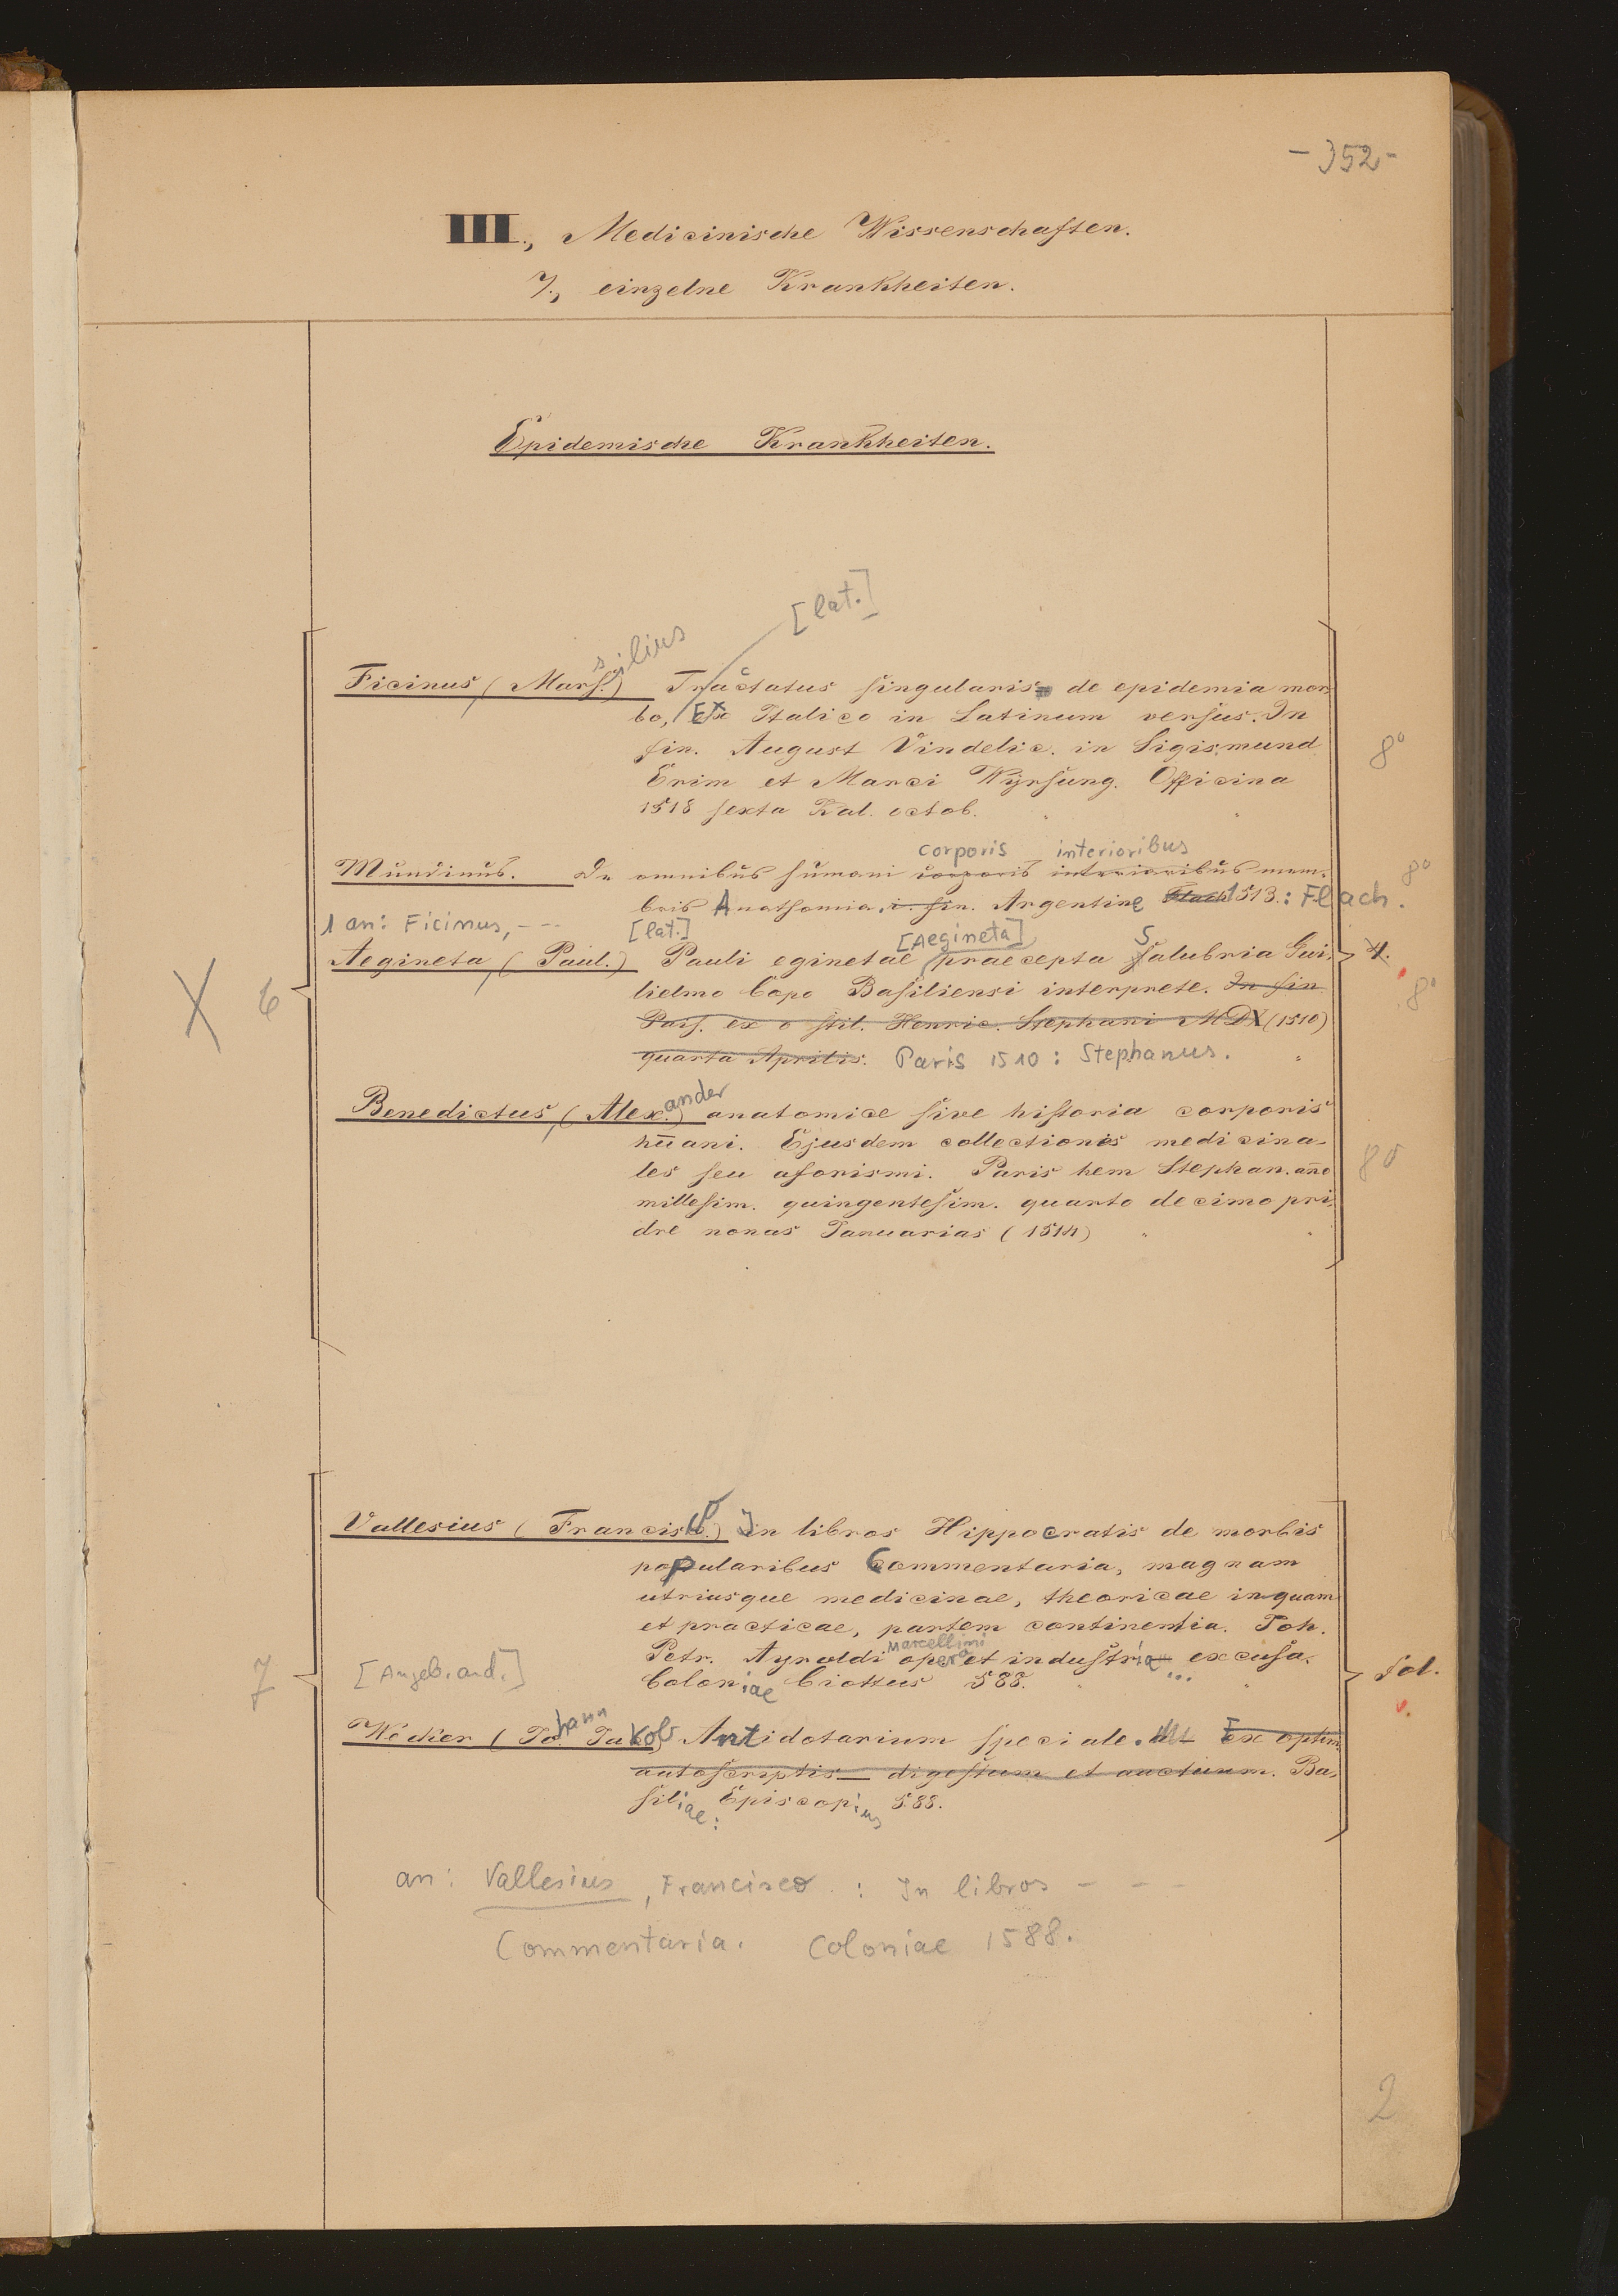 - 352 -
III., Medicinische Wissenschaften.
7., einzelne Krankheiten.
Epidemische Krankheiten.
[lat.]
silius
Ficinus (Mars.) Tractatus singularis de epidemia mor-
bo, Ex Italico in Latinum versus. In
fin. August Vindelic. in Sigismund
Grim et Marci Wÿrsung. Officina
1518 sexta Kal. octob.
8°
corporis interioribus
Mundinus. De omnibus humani corporis interioribus mem-
bris Anathomia. i. fin. Argentine Flach 1513.: Flach.
8°
1 an: Ficinus, - - -
[lat.] [Aegineta] S
Aegineta (Paul.) Pauli eginetae praecepta salubria Gui-
lielmo Copo Basiliensi interprete. In fin
Paris. ex o stil. Henric. Stephani MDX (1510)
quarta Aprilis. Paris 1510 : Stephanus.
4.
8°
X 6
ander
Benedictus (Alex.) anatomice sive historia corporis
hūani. Ejusdem collectiones medicina-
les seu aforismi. Paris hem Stephan. año
millesim. quingentesim. quarto decimo pri-
dre nonas Januarias (1514)
8°
Vallesius (Francisco.) In libros Hippocratis de morbis
popularibus Commentaria, magnam
utriusque medicinae, theoricae inquam
et practicae, partem continentia. Joh.
Marcellini
Petr. Ayroldi opera et industria excusa.
Coloniae Ciottus 588. ...
[Angeb. and.]
7
fol.
hann
Wecker (Jo. Jakob) Antidotarium speciale. Ex optim.
autoscriptis digestum et auctum. Ba-
siliae: Episcopius 588.
an: Vallesius, Francisco : In libros - - -
Commentaria. Coloniae 1588.
2